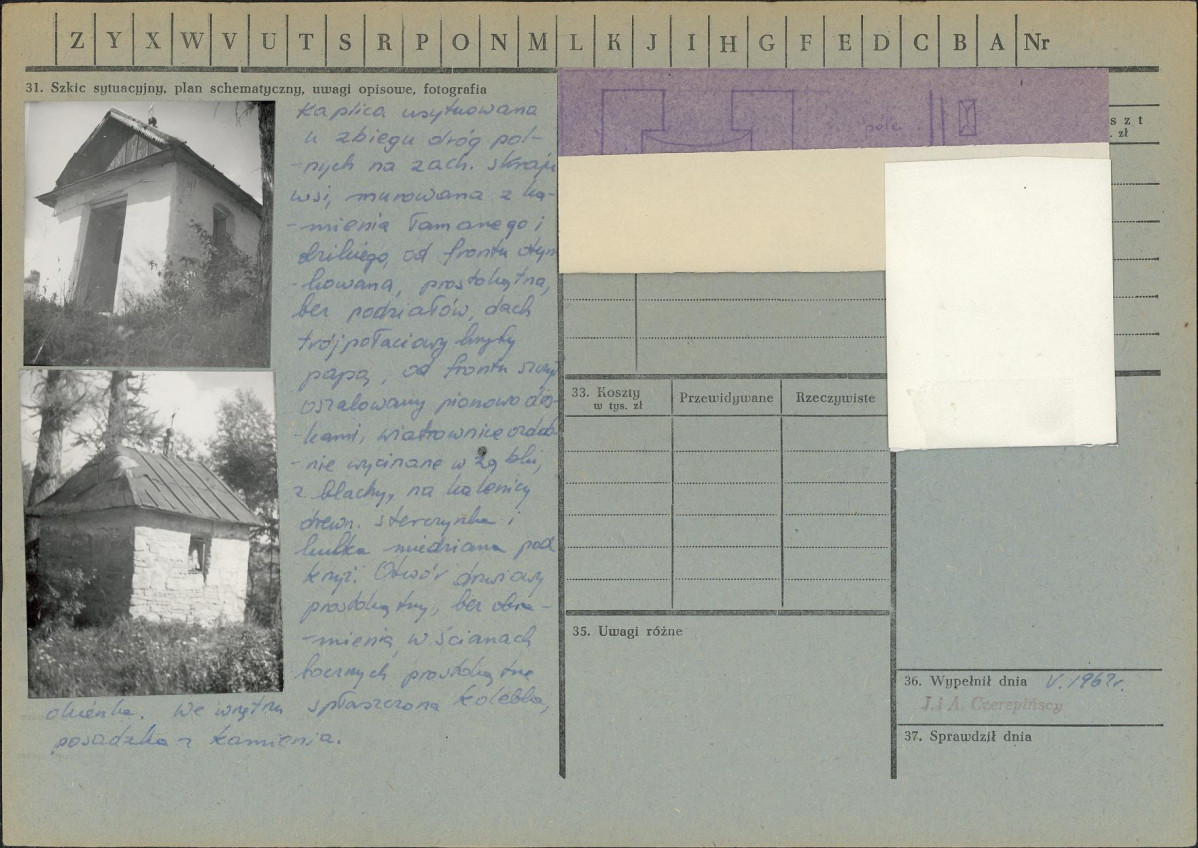 Z Y X W V U T S R P O N M L K J I H G F E D C B A Nr
31. Szkic sytuacyjny, plan schematyczny, uwagi opisowe, fotografia
Kaplica usytuowana
u zbiegu dróg pol-
-nych na zach. skraju
wsi, murowana z ka-
-mienia łamanego i
dzikiego, od frontu otyn
-kowana, prostokątna,
bez podziałów, dach
trójpołaciowy kryty
papą, od frontu szczyt
oszalowany pionowo des-
-kami, wiatrownice ozdob
-nie wycinane w ząbki,
z blachy, na kalenicy
drewn. sterczynka i
kulka miedziana pod
krzyż. Otwór drzwiowy
prostokątny, bez obra-
-mienia, w ścianach
bocznych prostokątne
okienka. We wnętrzu spłaszczona kolebka,
posadzka z kamienia.
pole
szt
. zł
33. Koszty
w tys. zł
Przewidywane
Rzeczywiste
35. Uwagi różne
36. Wypełnił dnia V.1967r.
J.i A. Czerepińscy
37. Sprawdził dnia